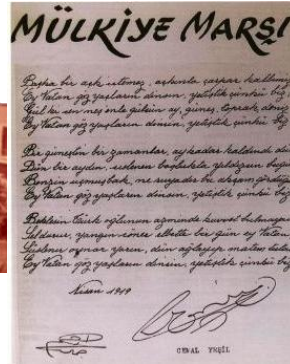 MÜLKİYE MARŞI
Başka bir aşk istemez, aşkınla çarpar kalbimiz
Ey Vatan göz yaşların dinsin, yetiştik çünkü biz
Gül ki sen neş'enle gülsün ay, güneş, toprak, deniz
Ey Vatan göz yaşların dinsin, yetiştik çünkü biz
Bir güneştin bir zamanlar, ay kadar kaldındı dün
Dün bir aydın, bugün
Benzin uçmuş bak, ne rüyadır bu akşam gördüğün
Ey Vatan göz yaşların dinsin, yetiştik çünkü biz
Beklesin Türk oğlunun azminde kuvvet bulmayan
Yıldırım, yangın elbette bir gün ey Vatan
oynar yarın, dün ağlayıp matem tutan
Ey Vatan göz yaşların dinsin, yetiştik çünkü biz
CEMAL YEŞİL